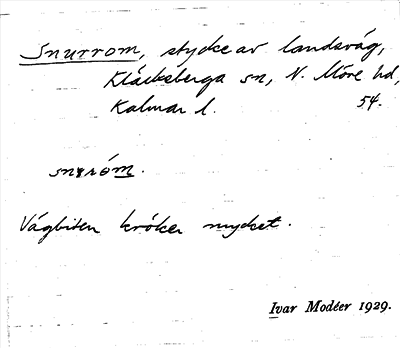 Snurrom, stycke av landsväg,
Kläckeberga sn, N. Möre hd,
Kalmar l. 54.
snuróm.
Vägbiten kröker mycket.
Ivar Modéer 1929.